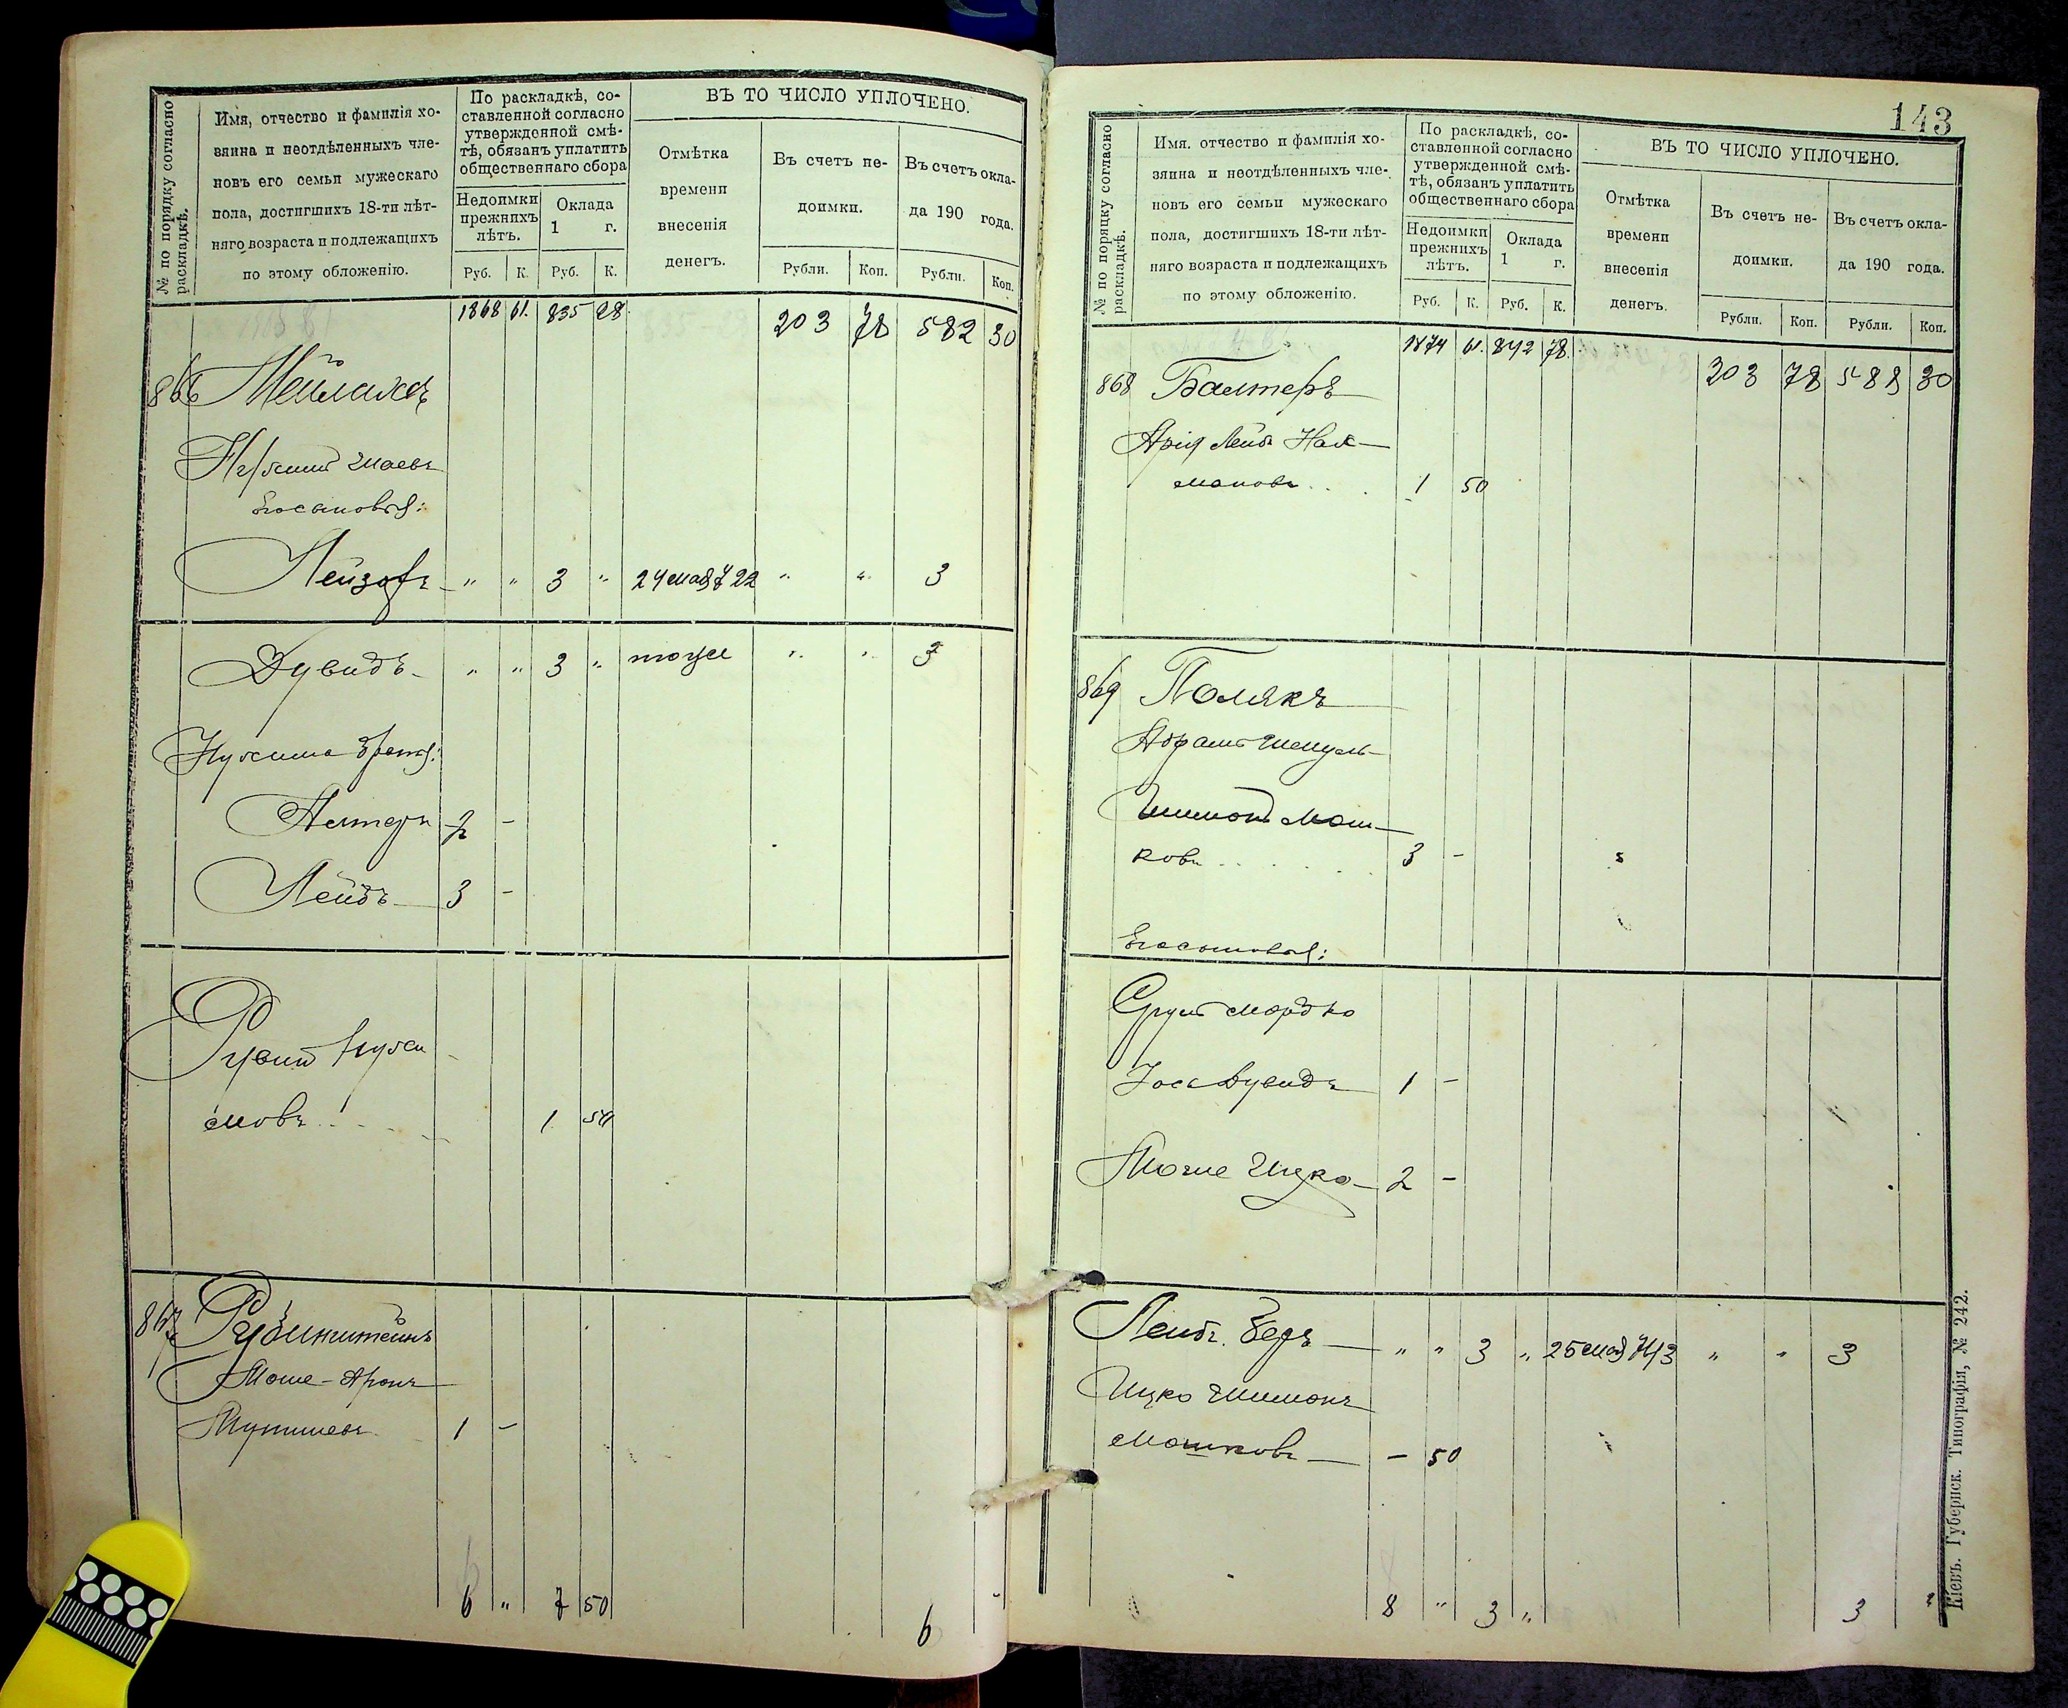 № по порядку согласно раскладкѣ.
Имя, отчество и фамилія хо-
зяина и неотдѣленныхъ чле-
новъ его семьи мужескаго
пола, достигшихъ 18-ти лѣт-
няго возраста и подлежащихъ
по этому обложенію.
По раскладкѣ, со-
ставленной согласно
утвержденной смѣ-
тѣ, обязанъ уплатить
общественнаго сбора
Недоимки прежнихъ лѣтъ.
Оклада 1 г.
Руб. К. Руб. К.
ВЪ ТО ЧИСЛО УПЛОЧЕНО.
Отмѣтка времени внесенія денегъ.
Въ счетъ не-
доимки.
Въ счетъ окла-
да 190 года.
Рубли. Коп. Рубли. Коп.
1868 61. 835 28. 203 78 582 30
866 Мейлахъ
Шаевъ
Егосыновья:
Лейзоръ " " 3 " 24 мая 722 " " 3
Дувидъ " " 3 " тоже " " 3
Нухима братья:
Альтеръ 2 -
Лейбъ 3 -
Рувинъ Нухи
мовъ 1 50
867 Рубинштейнъ
Моше-Аронъ
1 -
6 " 7 50 6
143
№ по порядку согласно раскладкѣ.
Имя. отчество и фамилія хо-
зяина и неотдѣленныхъ чле-
новъ его семьи мужескаго
пола, достигшихъ 18-ти лѣт-
няго возраста и подлежащихъ
по этому обложенію.
По раскладкѣ, со-
ставленной согласно
утвержденной смѣ-
тѣ, обязанъ уплатить
общественнаго сбора
Недоимки прежнихъ лѣтъ.
Оклада 1 г.
Руб. К. Руб. К.
ВЪ ТО ЧИСЛО УПЛОЧЕНО.
Отмѣтка времени внесенія денегъ.
Въ счетъ не-
доимки.
Въ счетъ окла-
да 190 года.
Рубли. Коп. Рубли. Коп.
1874 61. 842 78. 203 78 588 30
868 Балтеръ
Арія Лейбъ Нах-
мановъ 1 50
869 Полякъ
Абрамъ Шмуль
Шимонъ Мош-
ковъ 3 -
Егосыновья:
Срулъ Мордко
Йось Дувидъ 1 -
Моше Ицко 2 -
Лейбъ Беръ " " 3 " 25 мая 743 " " 3
Ицко Шимонъ
Мошковъ - 50
8 " 3 " 3 "
Кіевъ. Губернск. Типографія, № 242.